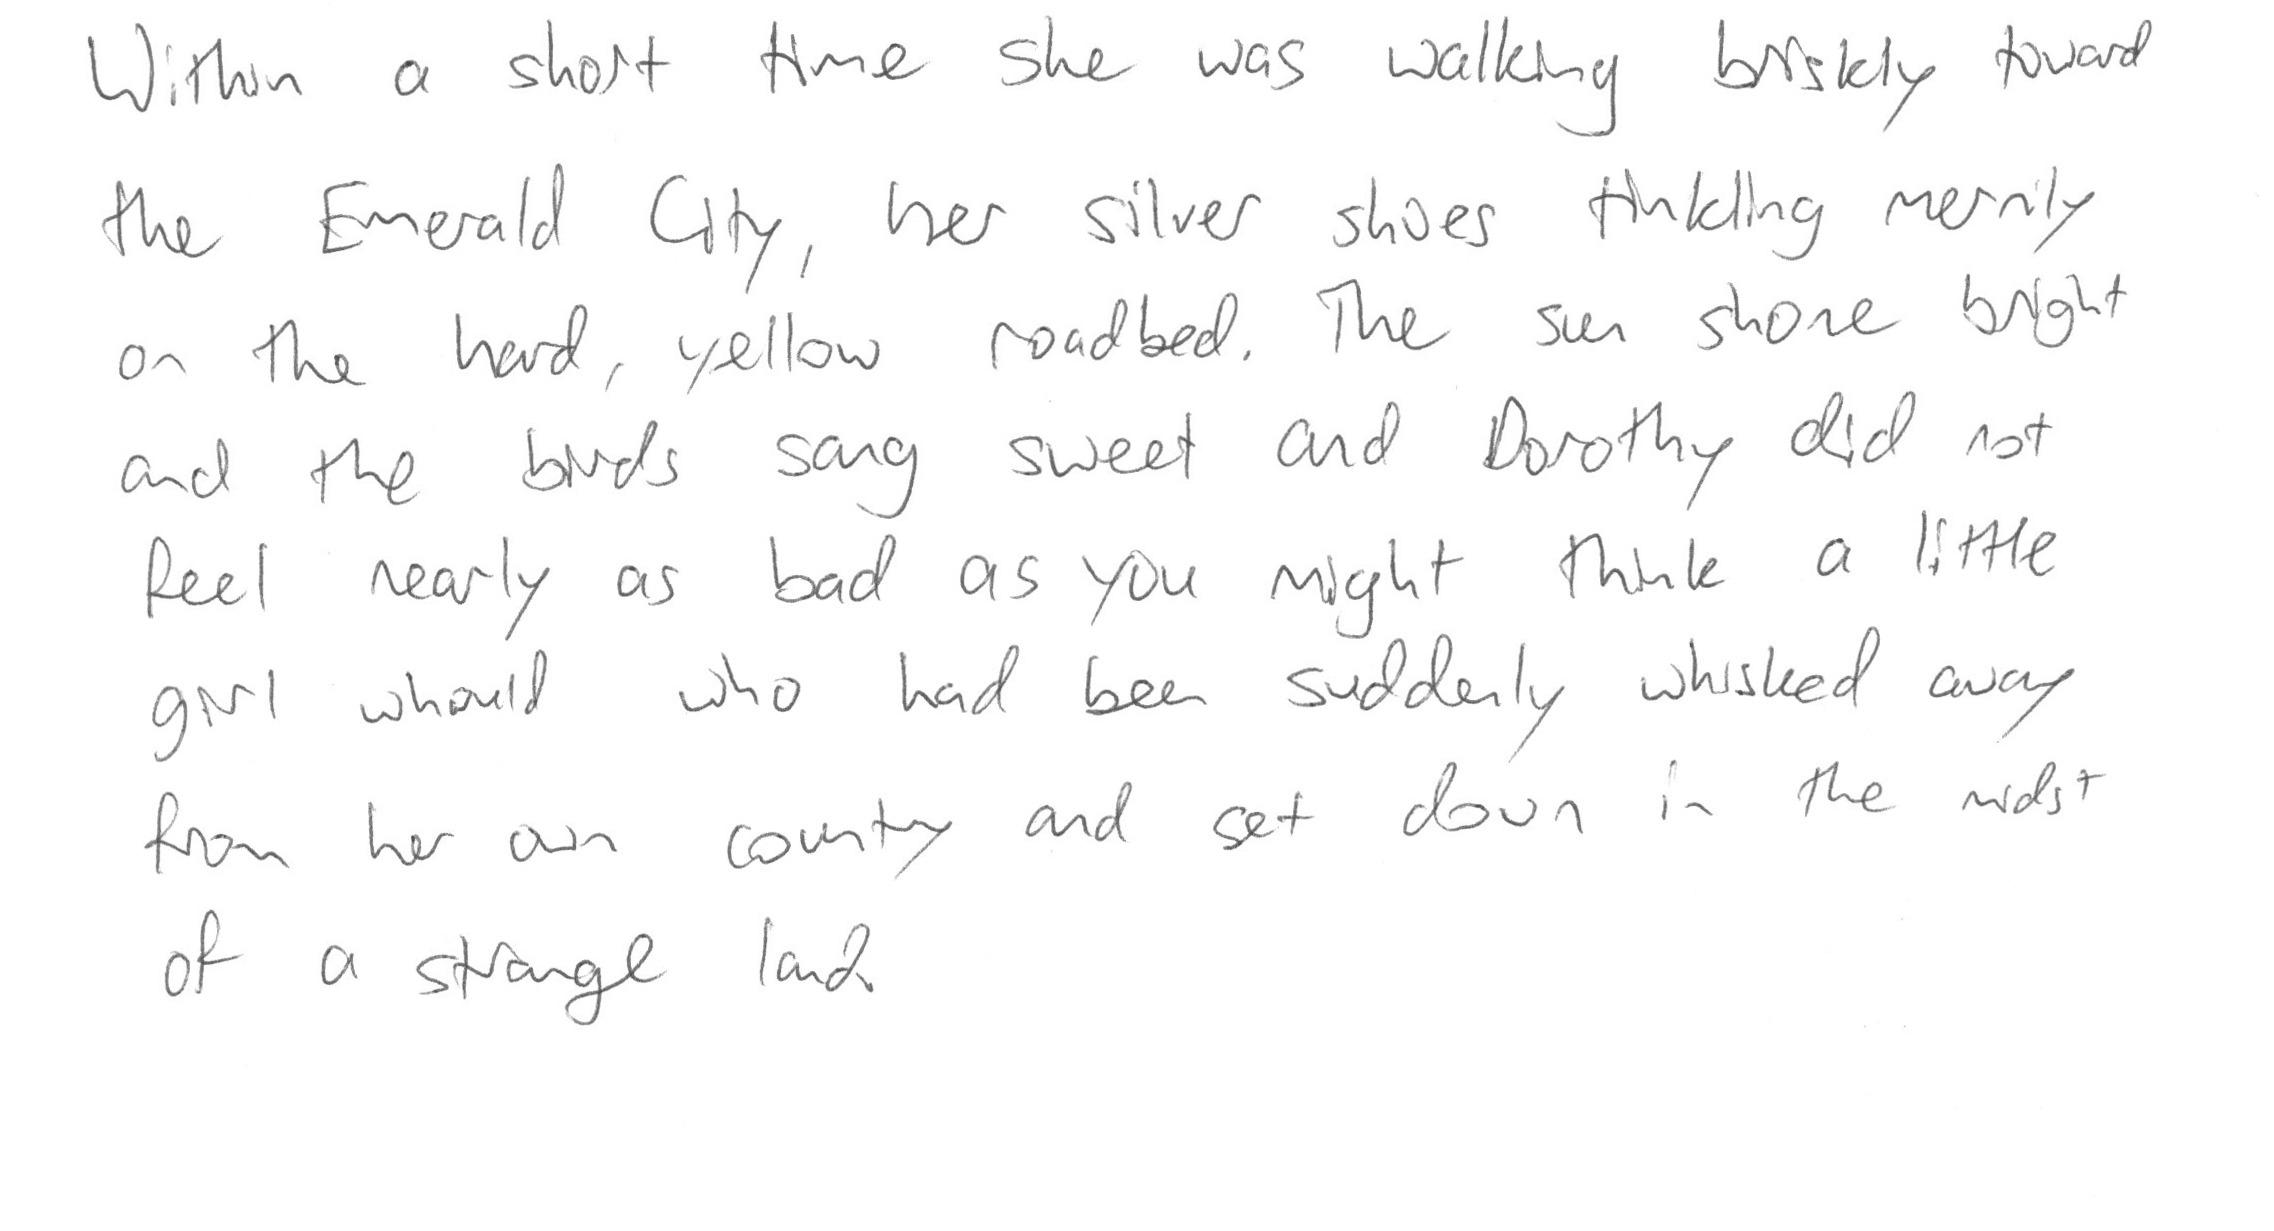 Within a short time she was walking briskly toward
the Emerald City, her silver shoes tinkling merrily
on the hard, yellow roadbed. The sun shone bright
and the birds sang sweet and Dorothy did not
feel nearly as bad as you might think a little
girl whould who had been suddenly whisked away
from her own country and set down in the midst
of a strange land.